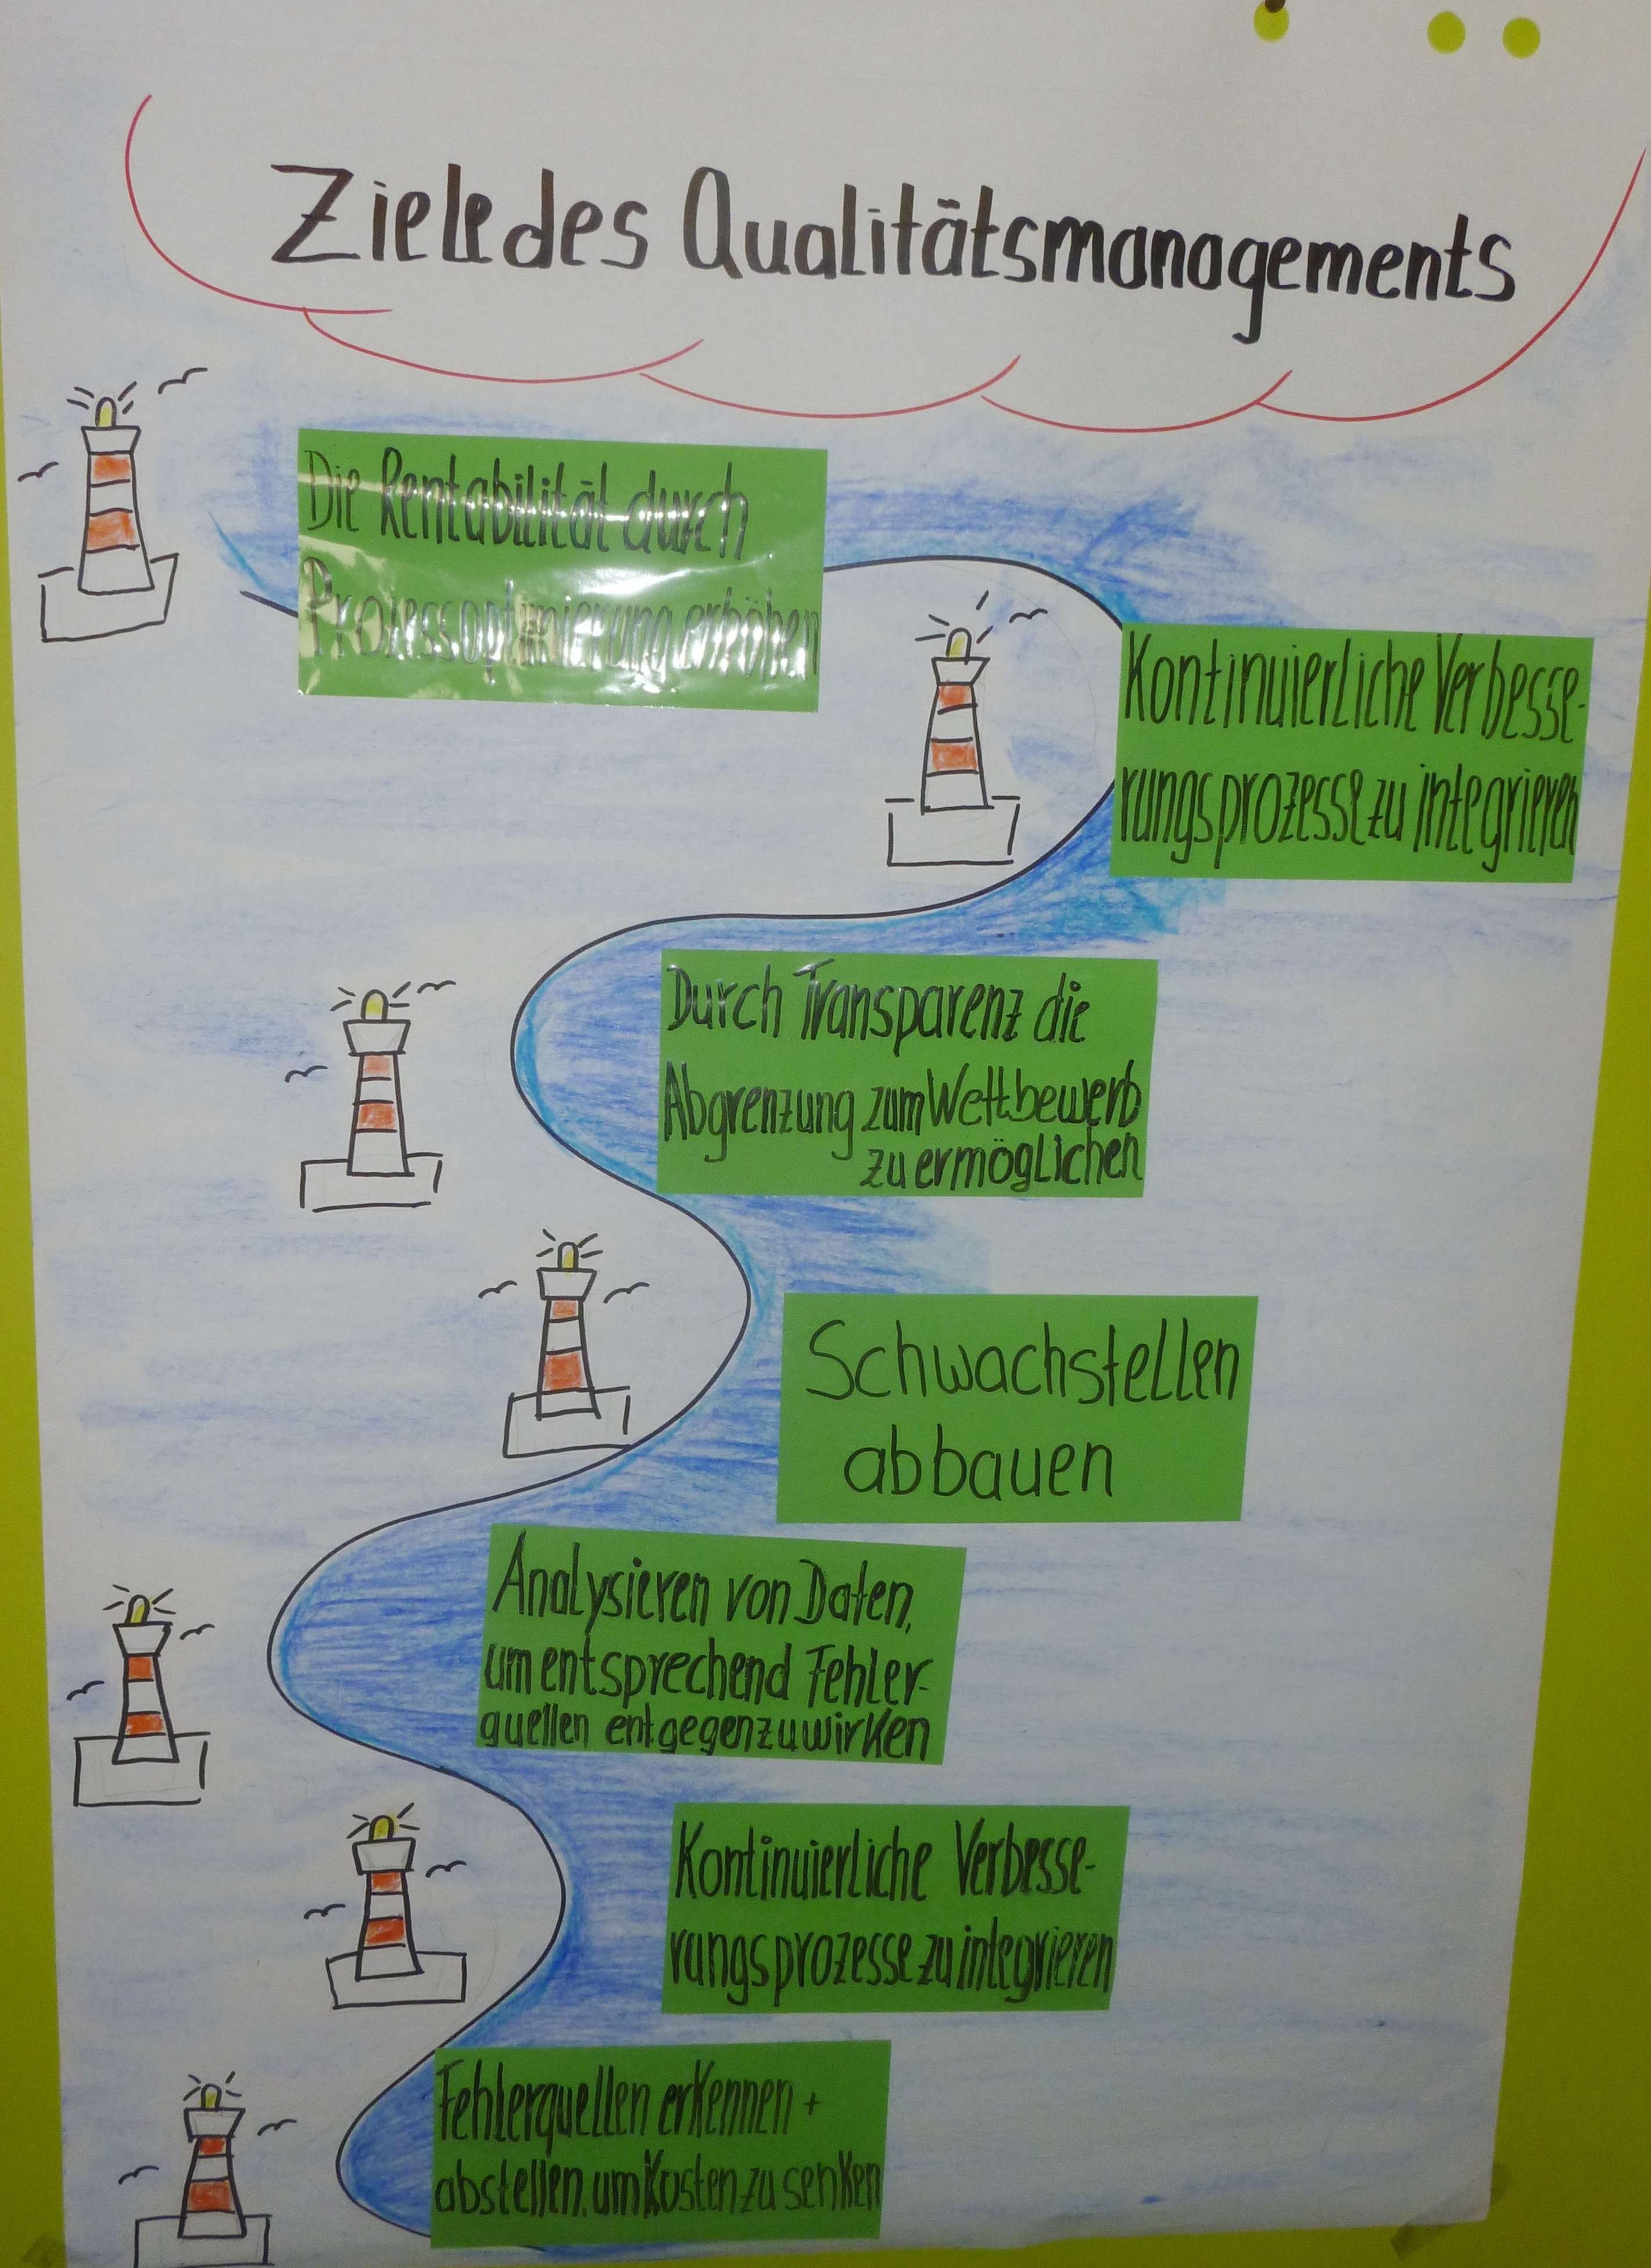 Ziele des Qualitätsmanagements
Die Rentabilität durch
Prozessoptimierung erhöhen
Kontinuierliche Verbesse-
rungsprozesse zu integrieren
Durch Transparenz die
Abgrenzung zum Wettbewerb
zu ermöglichen
Schwachstellen
abbauen
Analysieren von Daten,
um entsprechend Fehler-
quellen entgegenzuwirken
Kontinuierliche Verbesse-
rungsprozesse zu integrieren
Fehlerquellen erkennen +
abstellen, um Kosten zu senken